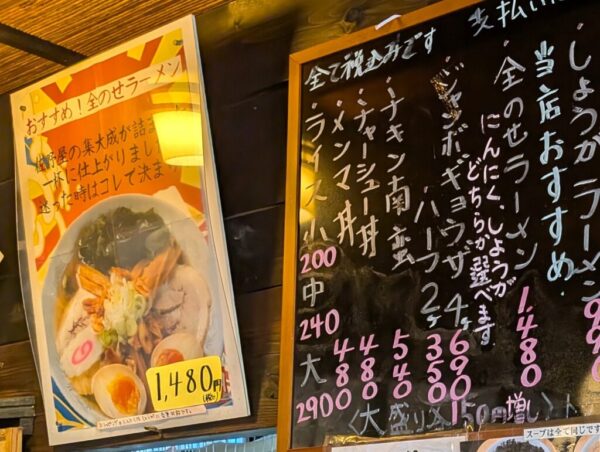 おすすめ！全のせラーメン
屋の集大成が詰ま
一杯に仕上がりました
迷った時はコレで決まり
1,480円
(税込)
全て税込みです
支払い
しょうがラーメン
当店おすすめ
・全のせラーメン 1.480
にんにく、しょうが
どちらか選べます。
・ジャンボギョウザ 4ケ 690
ハーフ 2ケ 350
・チキン南蛮 540
・ミニチャーシュー丼 480
・メンマ丼 480
・ライス 小 200
中 240
大 290
〈大盛り〉150円増し
スープは全て同じです